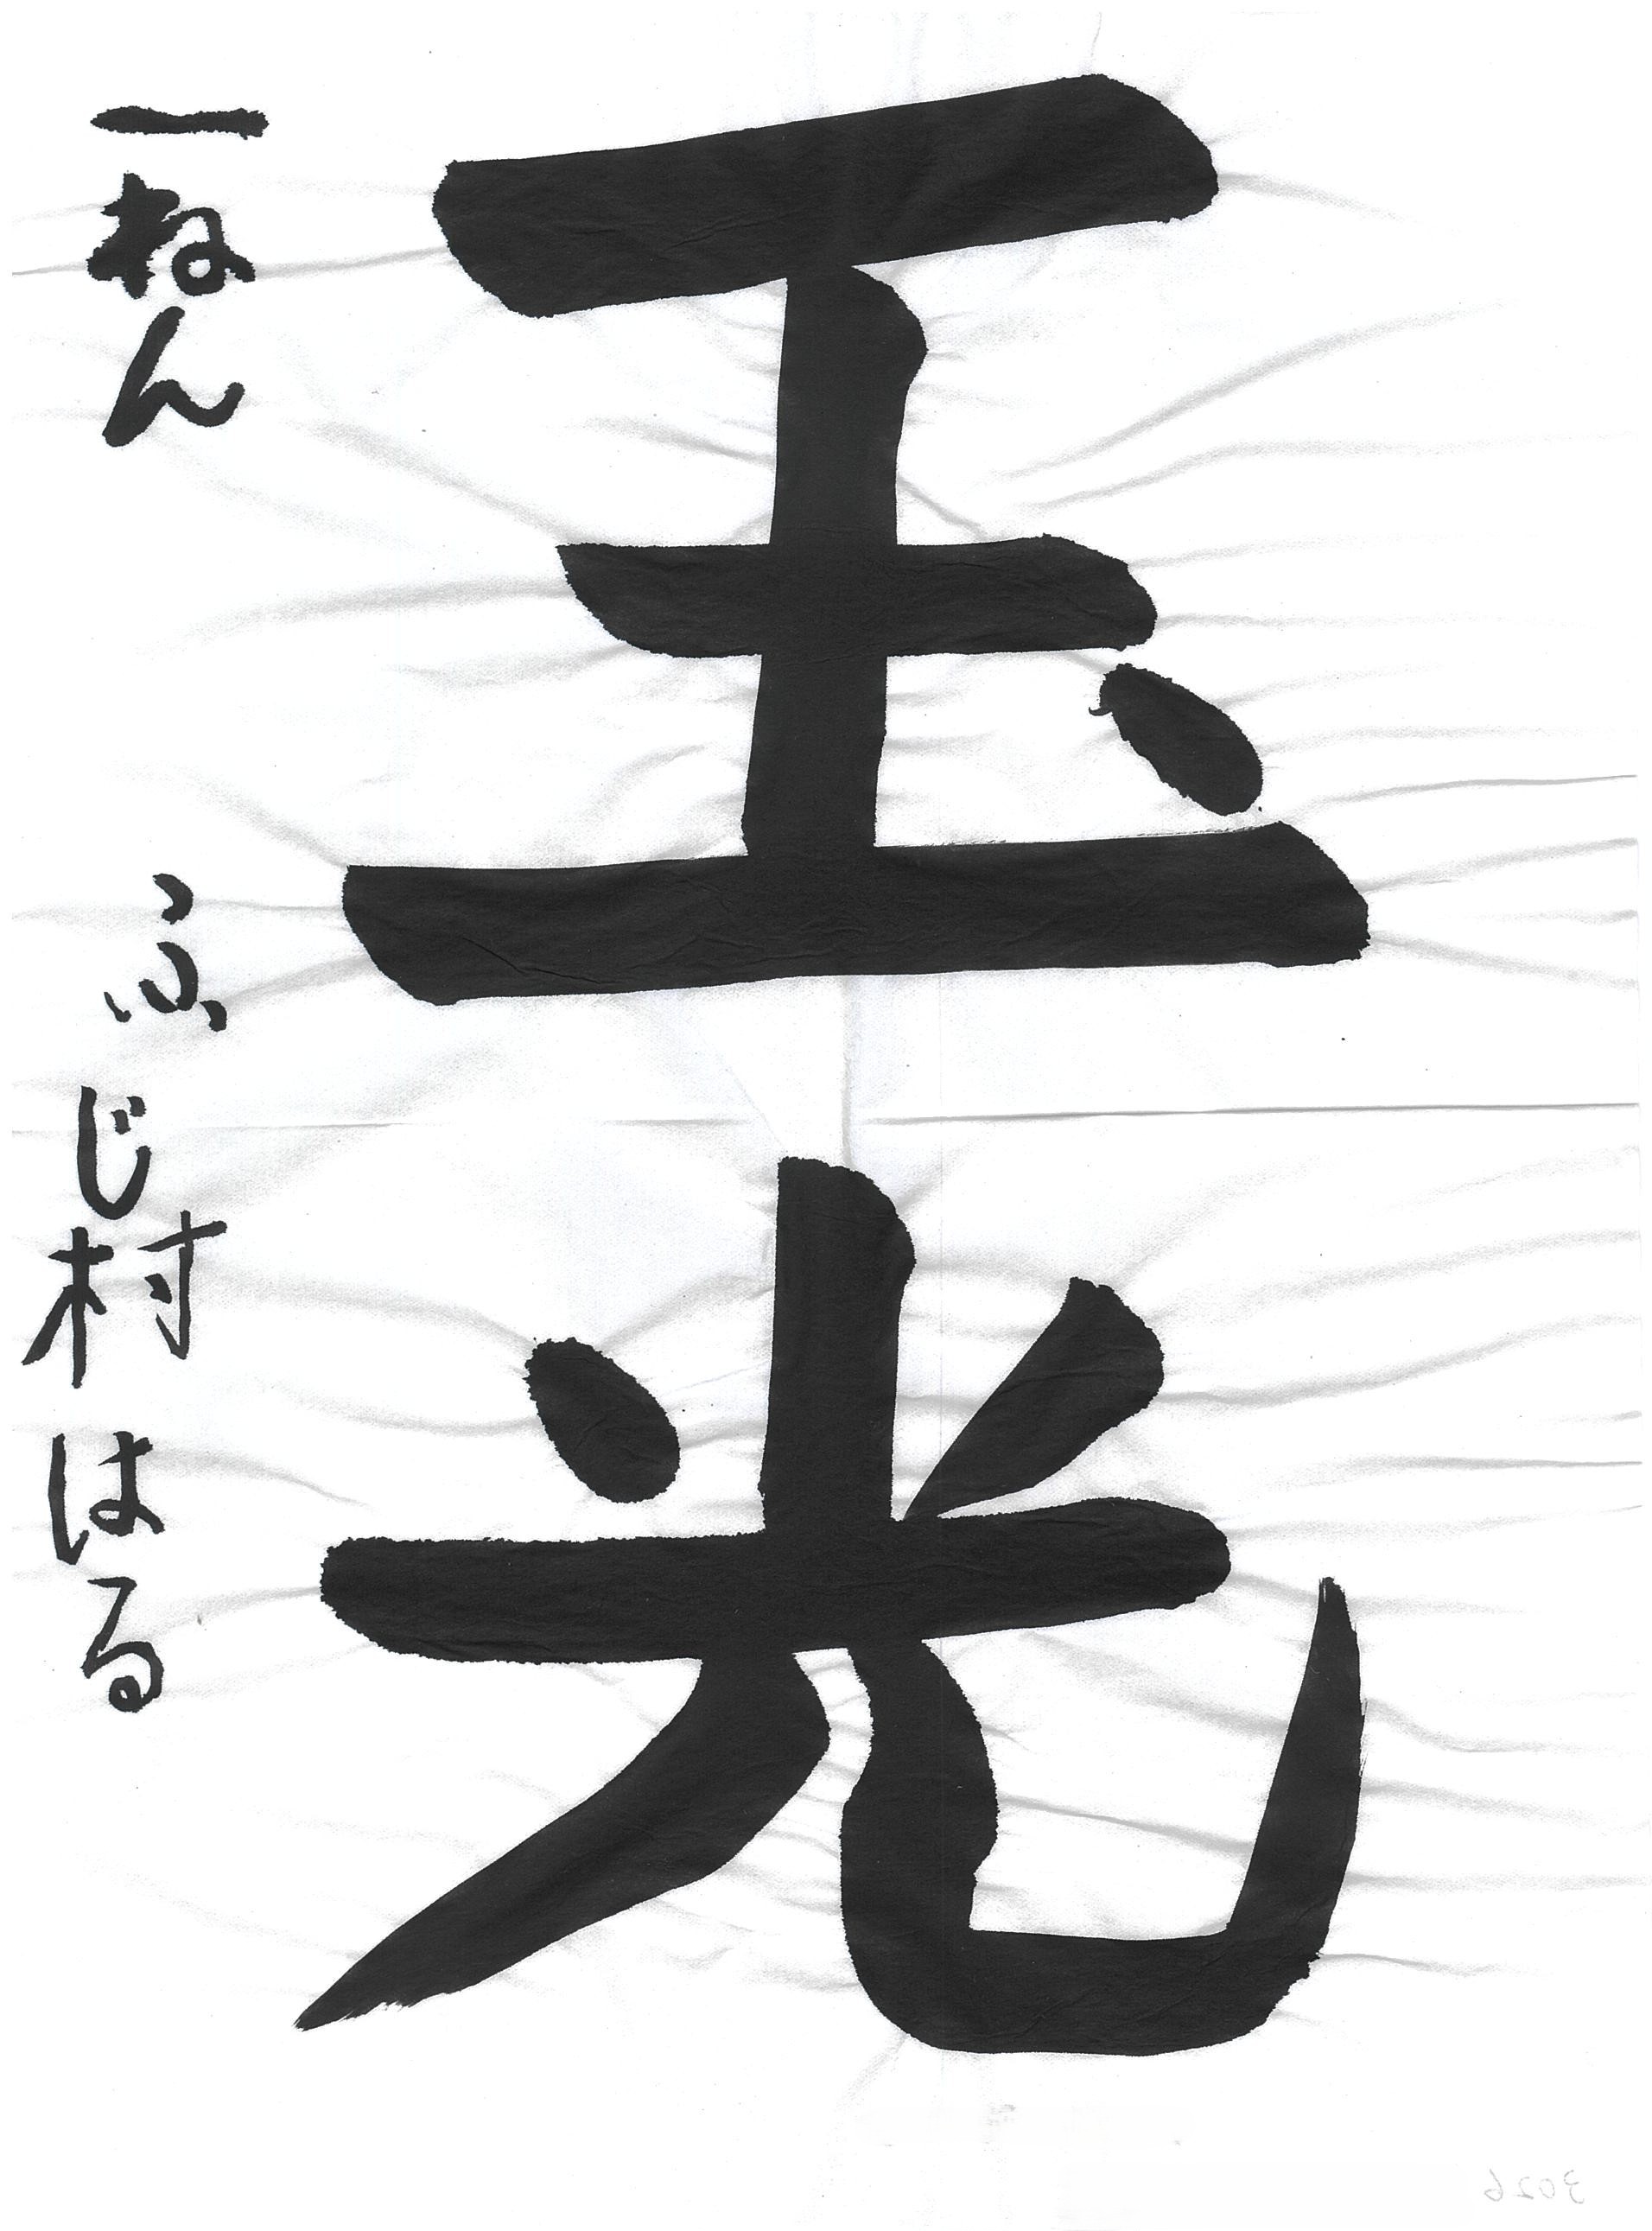 玉光
一ねん ふじ村はる
3026